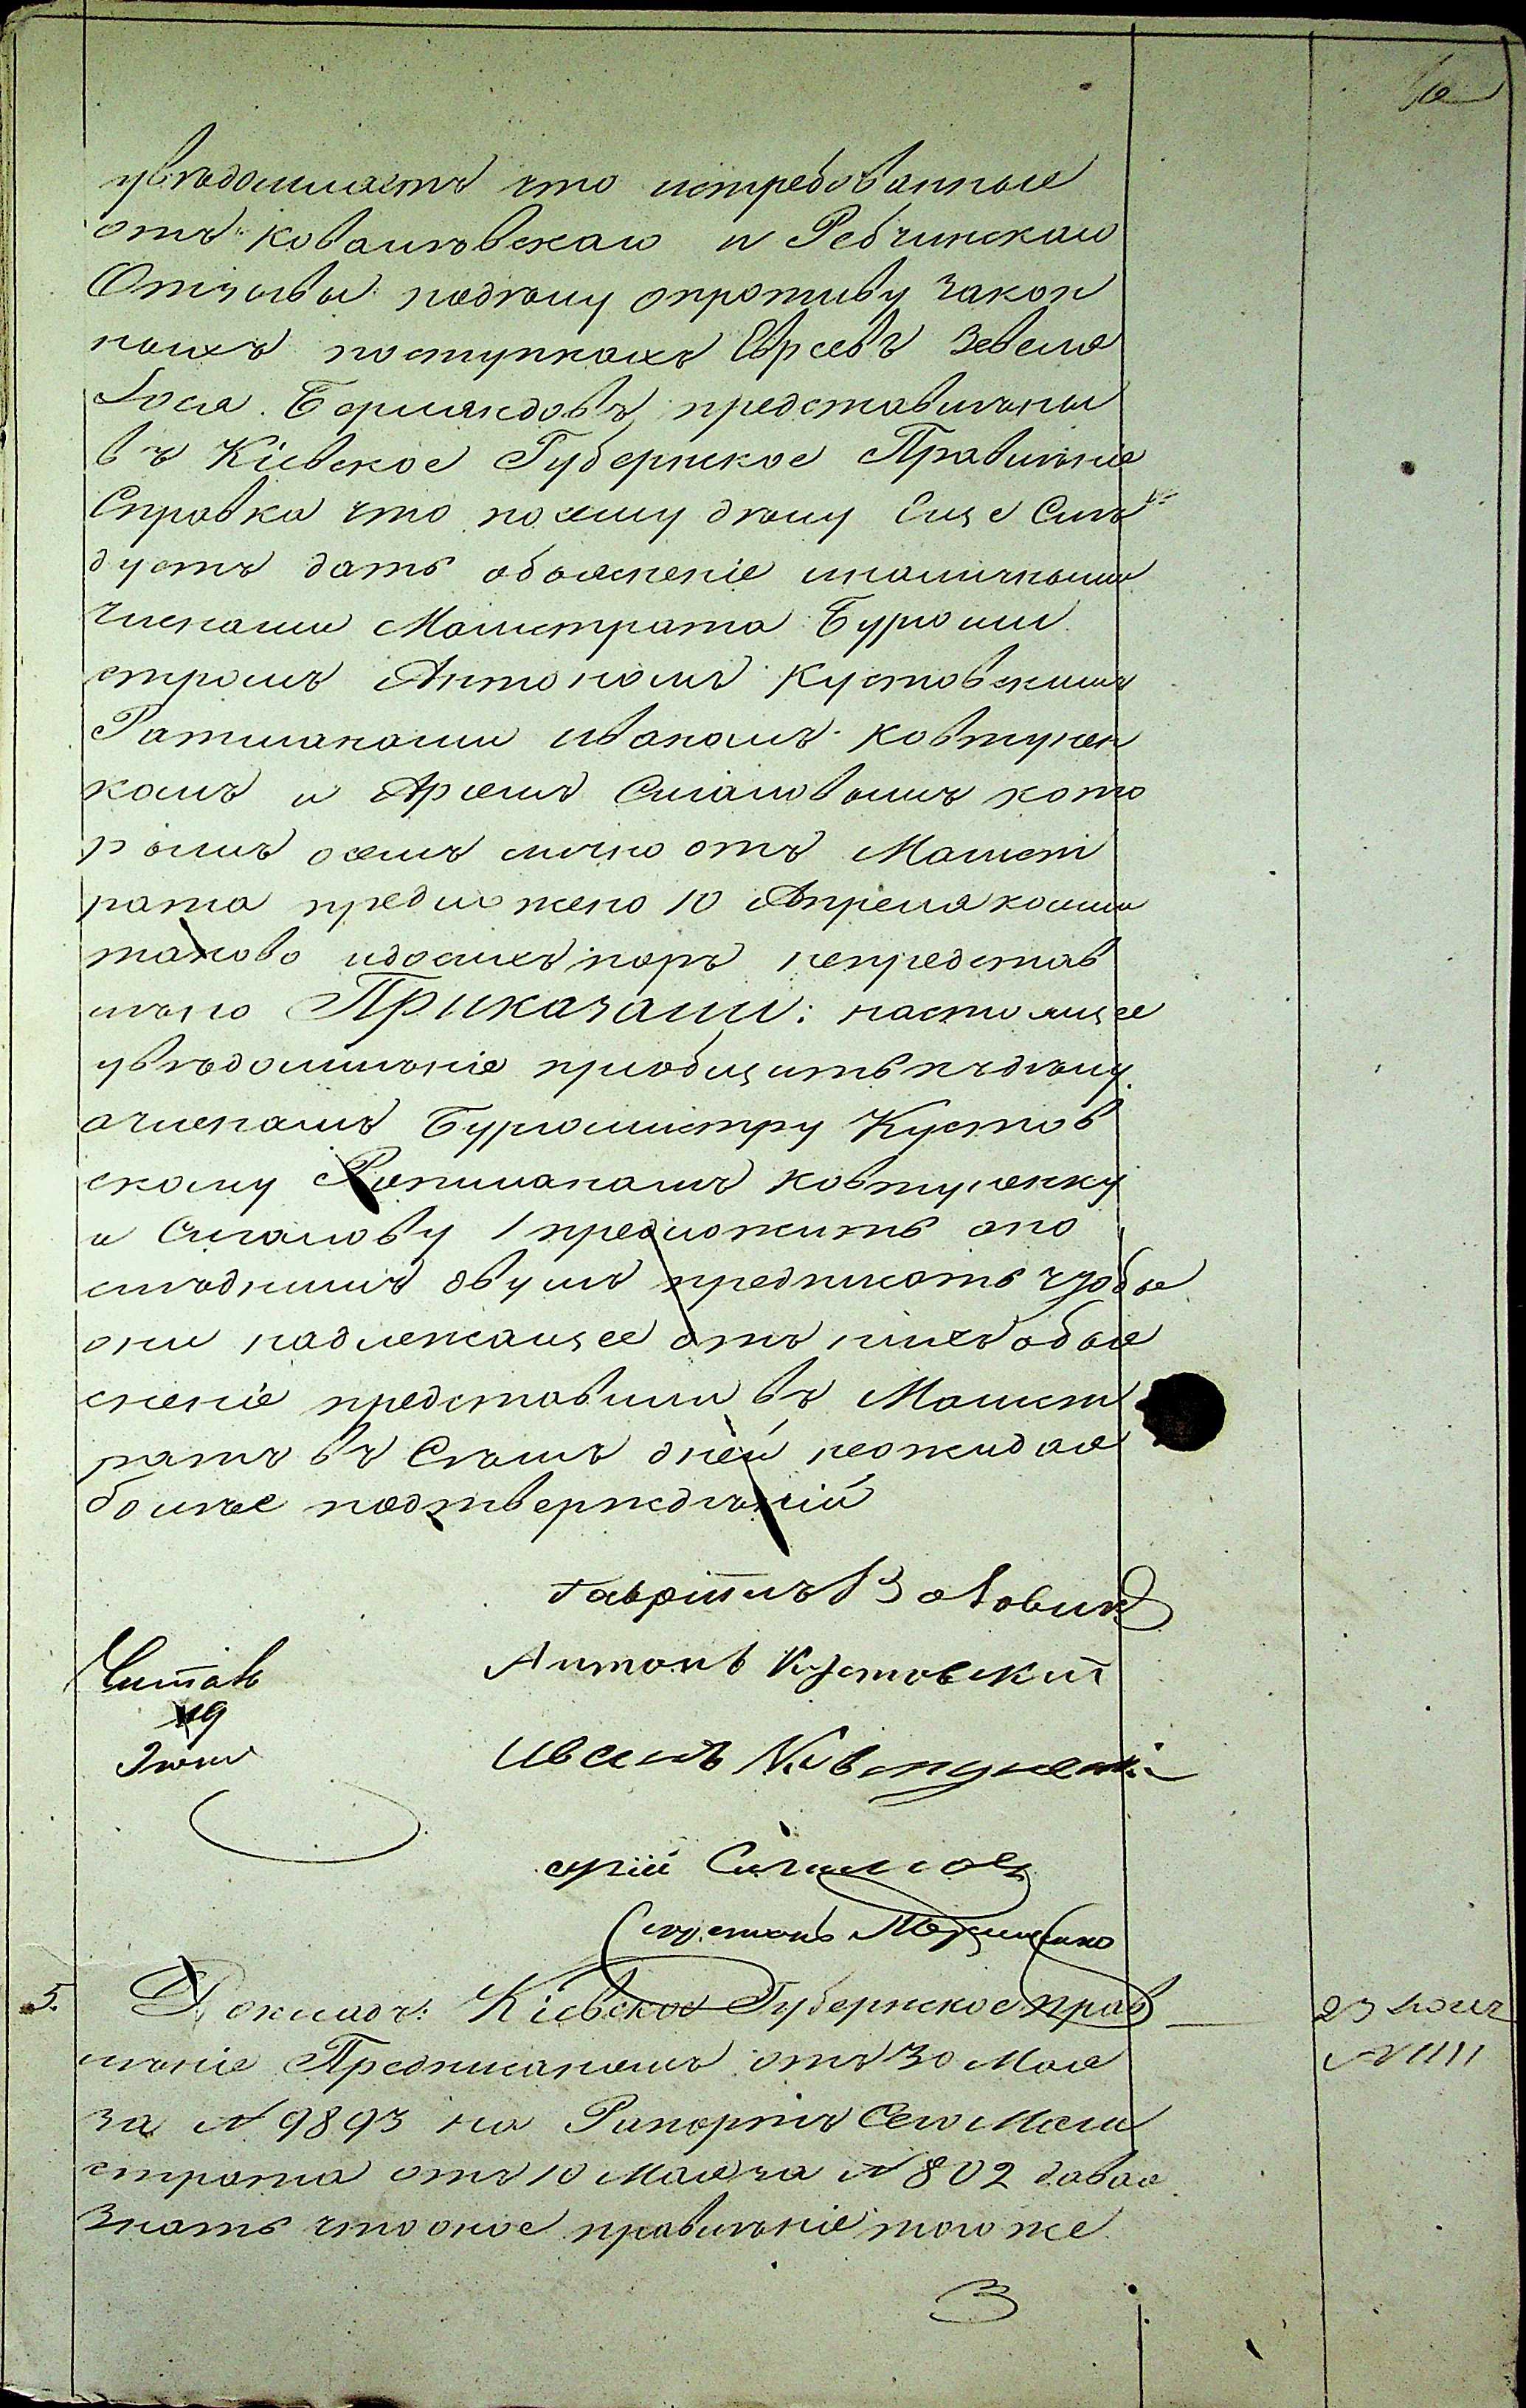 увѣдомляетъ что истребованные
отъ Ковалѣвскаго и Ребчинскаго
Отзывы подѣлу опротиву закон
ныхъ поступкахъ Евреевъ Зевеля
Іося Бермандовъ, представлѣны
въ Кіевское Губернское Правлѣніе
Справка что посему дѣлу Еще Слѣ
дуетъ дать объясненіе иналичными
членами Магистрата Бургоми
стромъ Антономъ Кустовскимъ
Ратманами Иваномъ Ковтунен
комъ и Аріемъ Сигаловымъ кото
рымъ осемъ лично отъ Магист
рата предложено 10 Апреля коими
таково идосихъ поръ непредстав
лѣно Приказали: настоящее
увѣдомлѣніе пріобщить къ дѣлу
ачленамъ Бургомистру Кустов
скому Ратманамъ Ковтуненку
и Сигалову предложить апо
слѣднимъ двумъ предписать чтобы
они надлежащее отъ нихъ объя
сненіе представили въ Магист
ратъ въ Семь дней неожидая
болѣе подтвержденій
Гавріилъ
Антонъ Кустовскій
Читалъ
19
Іюня
Ивань Ковтуненко
арій Сигалов
5. Докладъ: Кіевское Губернское Прав
23 Іюня
лѣніе Предписаніемъ отъ 30 Мая
№ 1111
за № 9893 на Рапортъ Сего Маги
страта отъ 10 Мая за № 802 давая
Знать что оное правлѣніе того же